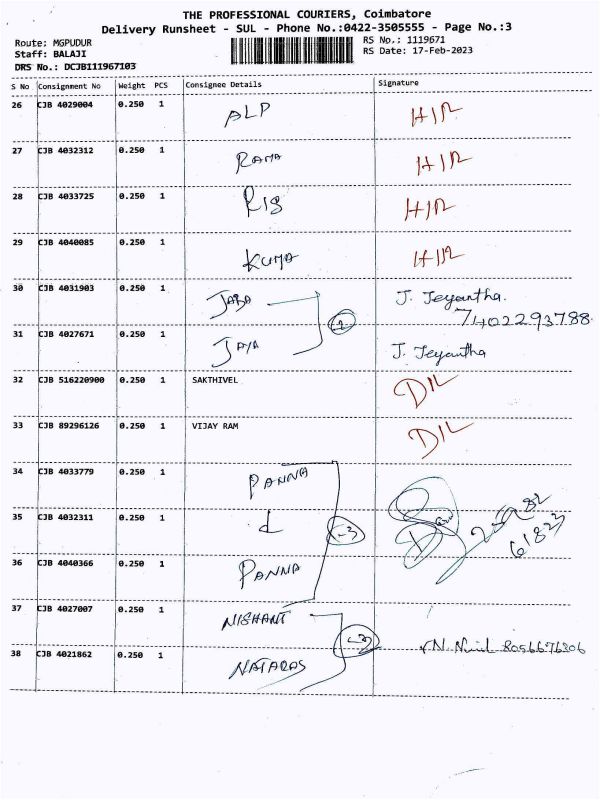 THE PROFESSIONAL COURIERS, Coimbatore
Delivery Runsheet - SUL - Phone No.:0422-3505555 - Page No.:3
Route: MGPUDUR
Staff: BALAJI
DRS No.: DCJB111967103
RS No.: 1119671
RS Date: 17-Feb-2023
S No Consignment No Weight PCS Consignee Details Signature
26 CJB 4029004 0.250 1 ALP
27 CJB 4032312 0.250 1 RAMA
28 CJB 4033725 0.250 1
29 CJB 4040085 0.250 1 KUMA
30 CJB 4031903 0.250 1 J. Jeyantha.
7402293788
31 CJB 4027671 0.250 1 JAYA J. Jeyantha
32 CJB 516220900 0.250 1 SAKTHIVEL
33 CJB 89296126 0.250 1 VIJAY RAM
34 CJB 4033779 0.250 1 PANNA
35 CJB 4032311 0.250 1
36 CJB 4040366 0.250 1 PANNA
37 CJB 4027007 0.250 1 NISHANT
38 CJB 4021862 0.250 1 8056676306